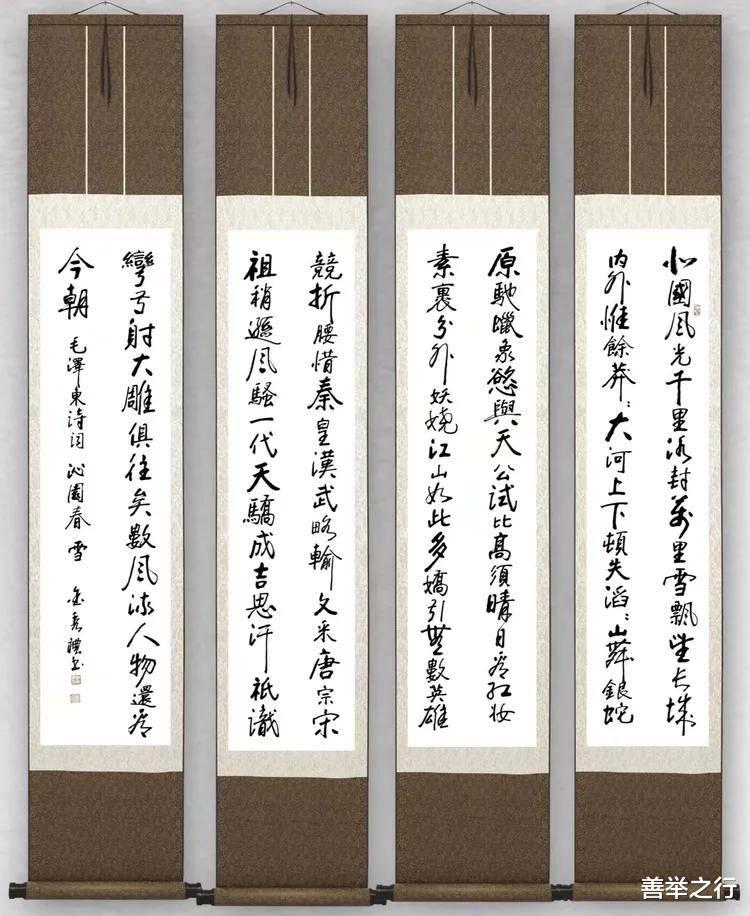 北國風光千里冰封萬里雪飄望長城
內外惟餘莽〻大河上下頓失滔〻山舞銀蛇
原馳蠟象慾與天公試比高須晴日看紅妝
素裹分外妖嬈江山如此多嬌引無數英雄
競折腰惜秦皇漢武略輸文采唐宗宋
祖稍遜風騷一代天驕成吉思汗祇識
彎弓射大雕俱往矣數風流人物還看
今朝 毛澤東詩詞 沁園春 雪
善举之行